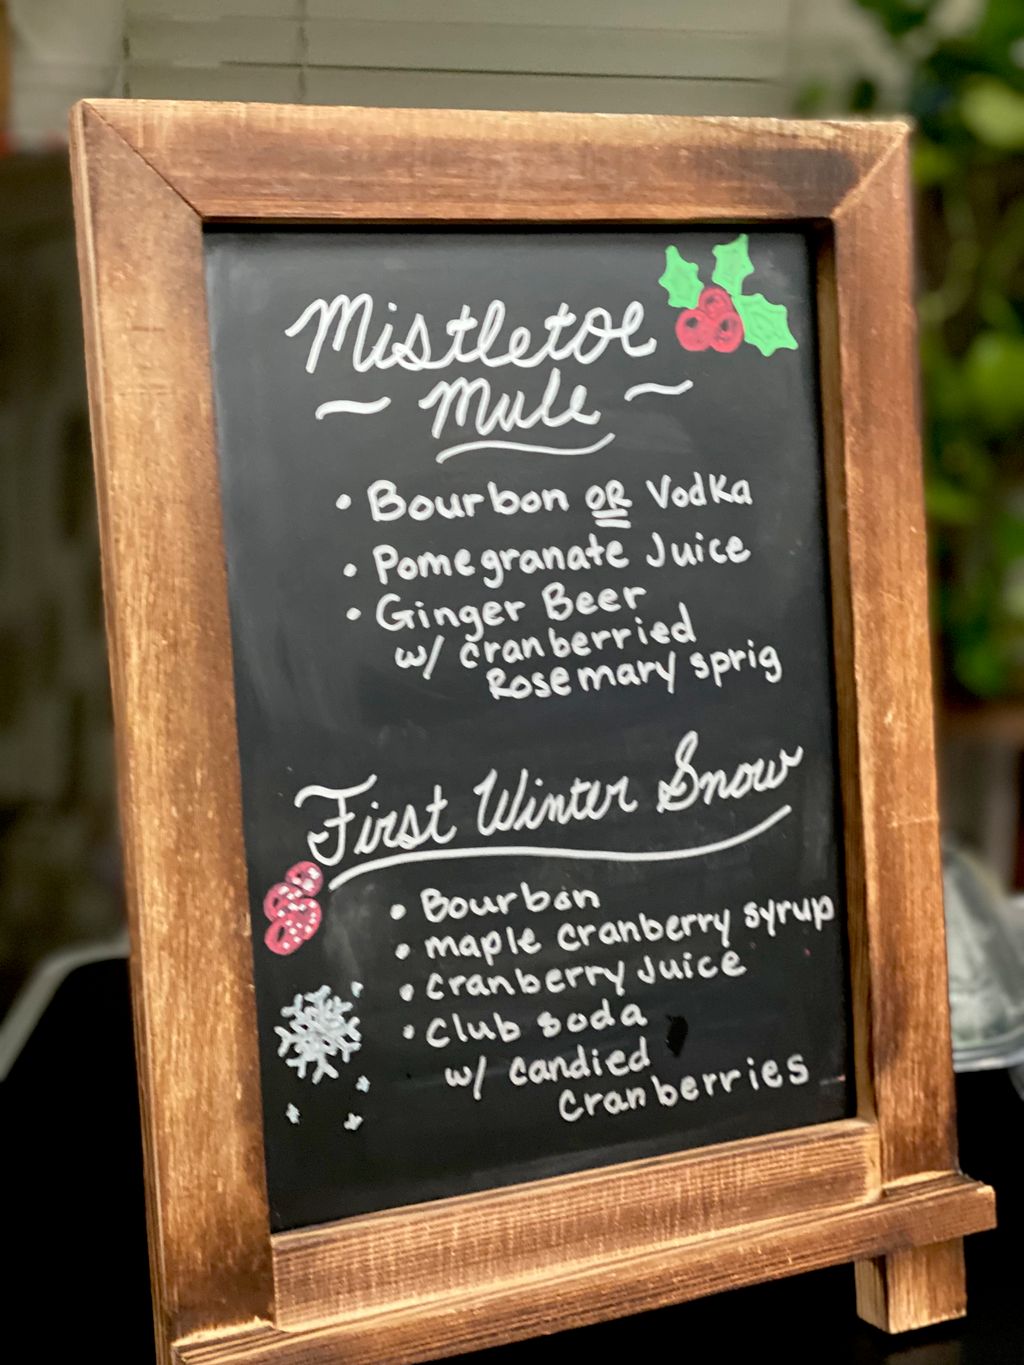 Mistletoe
~ Mule ~
• Bourbon OR Vodka
• Pomegranate Juice
• Ginger Beer
w/ cranberried
Rosemary sprig
First Winter Snow
• Bourbon
• maple cranberry syrup
• cranberry Juice
• club soda
w/ candied
cranberries